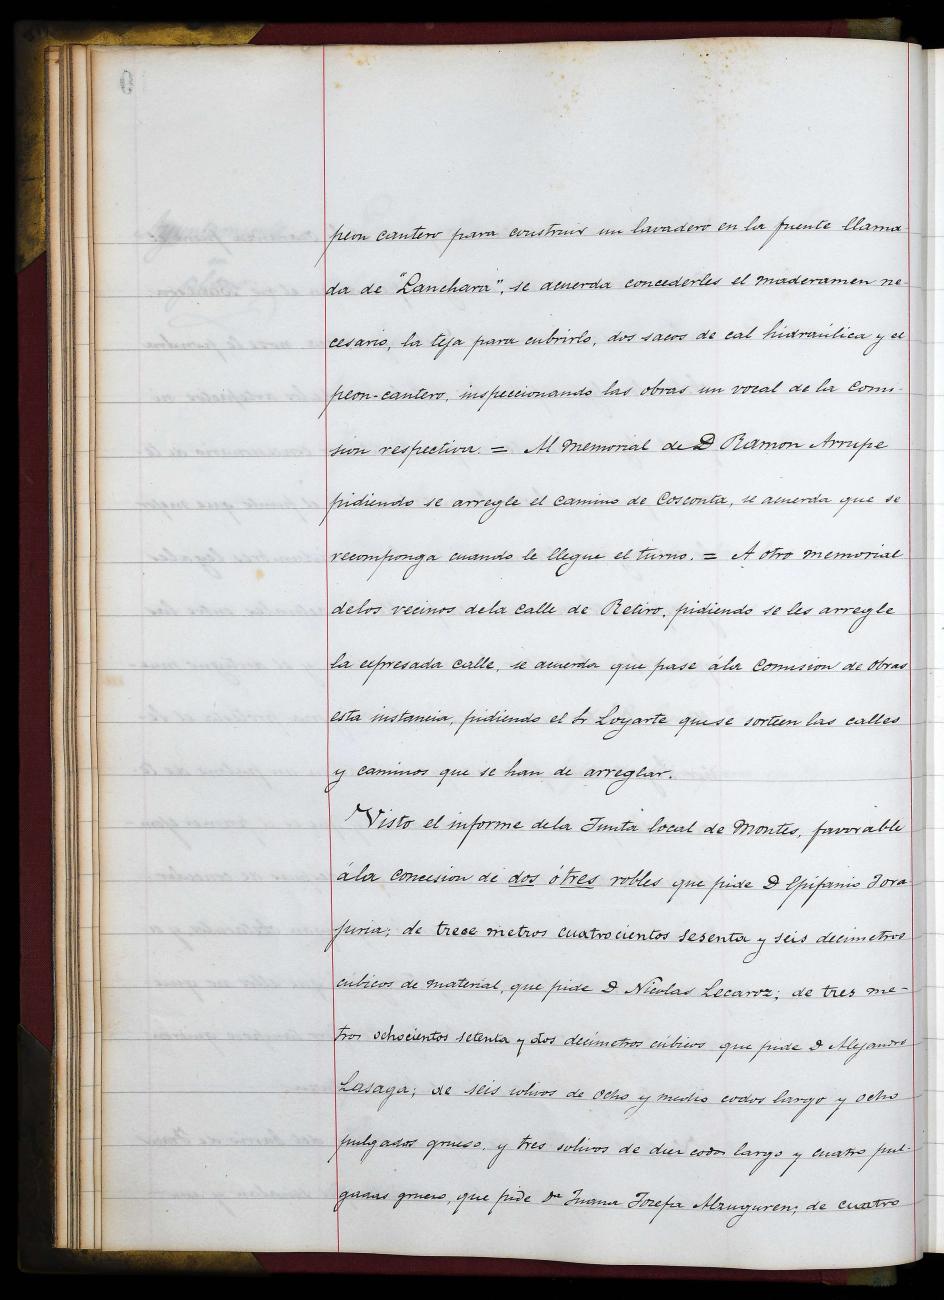 peon cantero para construir un lavadero en la fuente llama
da de "Lanchara", se acuerda concederles el maderamen ne
cesario, la teja para cubrirlo, dos sacos de cal hidraúlica y el
peon-cantero, inspeccionando las obras un vocal de la Comi-
sion respectiva. = Al Memorial de D Ramon Arrupe
pidiendo se arregle el camino de Cosconta, se acuerda que se
recomponga cuando le llegue el turno. = A otro memorial
delos vecinos dela calle de Retiro, pidiendo se les arregle
la espresada calle, se acuerda que pase ála Comision de Obras
esta instancia, pidiendo el Sr Loyarte que se sorteen las calles
y caminos que se han de arreglar.
Visto el informe dela Junta local de Montes, favorable
ála concesion de dos ó tres robles que pide D Epifanio Tora
piria; de trece metros cuatrocientos sesenta y seis decimetros
cúbicos de material, que pide D Nicolas Lecaroz; de tres me-
tros ochocientos setenta y dos decimetros cúbicos que pide D Alejandro
Lasaga; de seis solivos de ocho y medio codos largo y ocho
pulgadas grueso, y tres solivos de diez codos largo y cuatro pul
gadas grueso, que pide Da Juana Josefa Alzuguren; de cuatro